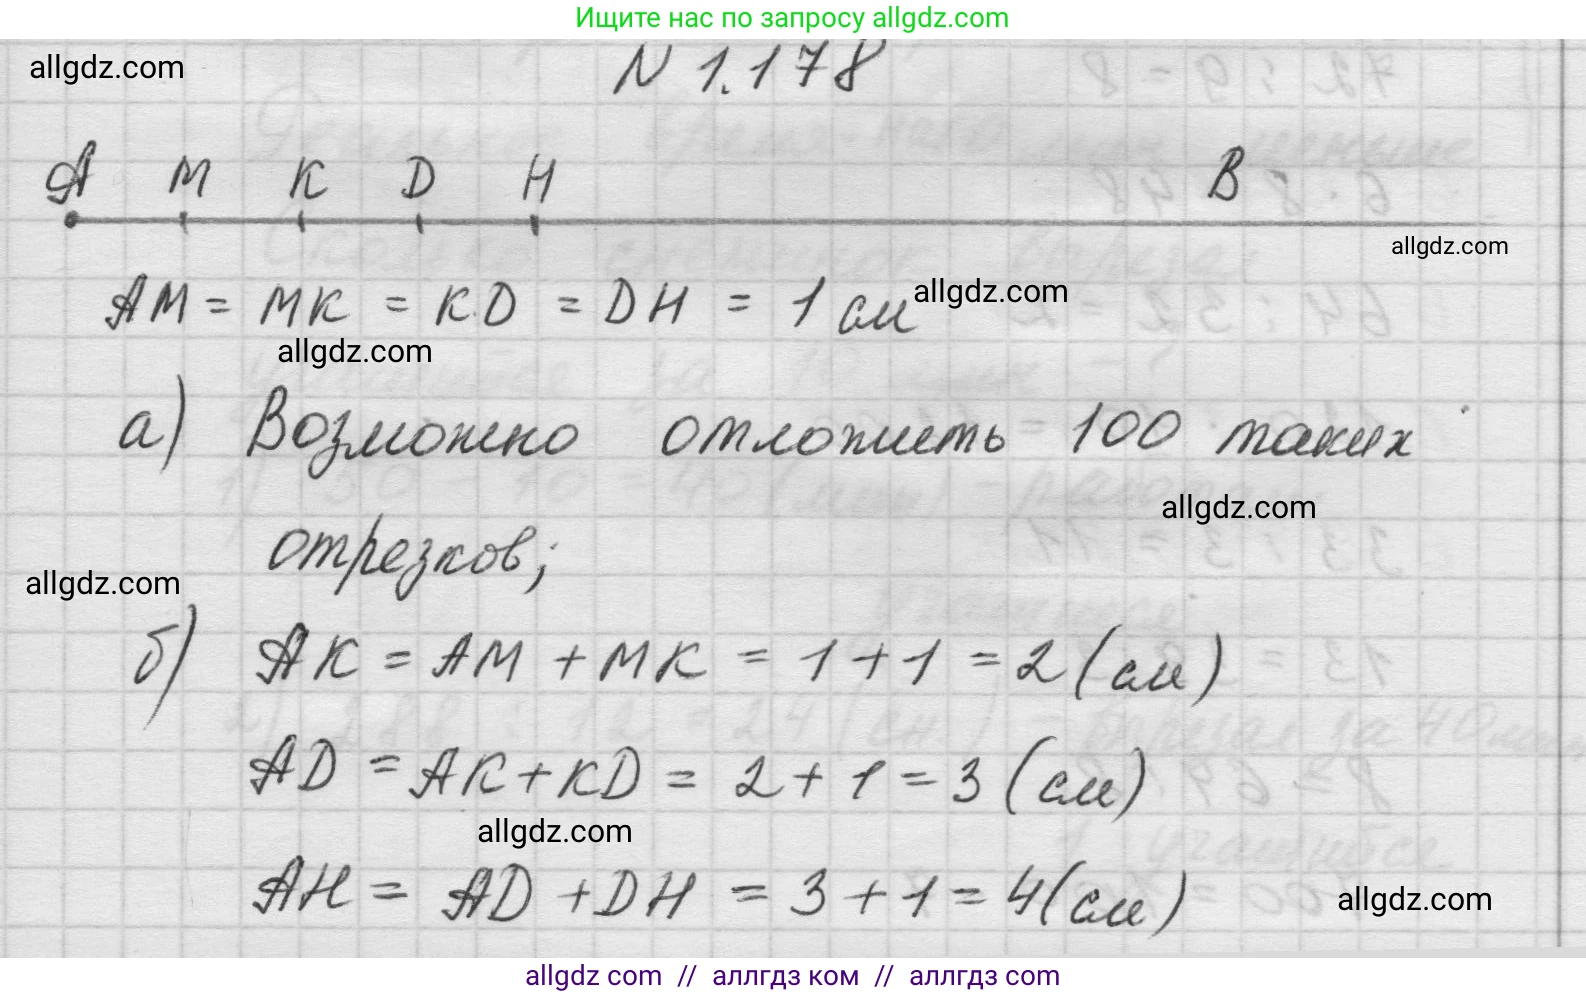 Ищите нас по запросу allgdz.com
allgdz.com
N 1.178
A M K D H B
allgdz.com
AM = MK = KD = DH = 1 см
allgdz.com
allgdz.com
а) Возможно отложить 100 таких
allgdz.com
отрезков;
allgdz.com
б) AK = AM + MK = 1 + 1 = 2 (см)
AD = AK + KD = 2 + 1 = 3 (см)
allgdz.com
AH = AD + DH = 3 + 1 = 4 (см)
allgdz.com
allgdz com // аллгдз ком // аллгдз com